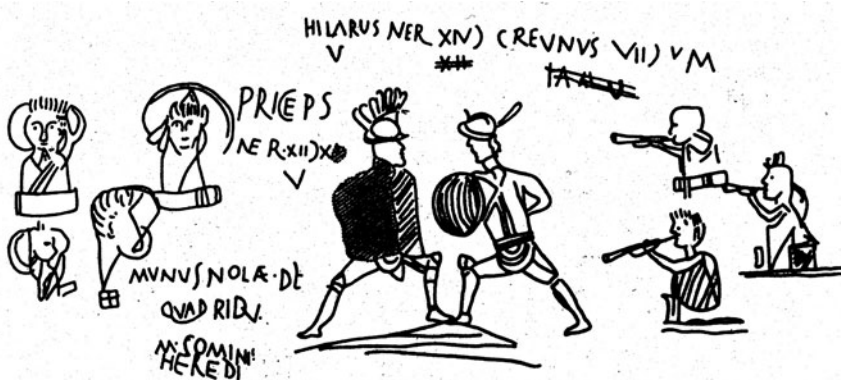 HILARUS NER XIV) CREUNUS VII) V M
V
PRICEPS
NER·XII)X
V
MUNUS NOLÆ·DE
QUADRIDU.
M·SOMINI!
HEREDI